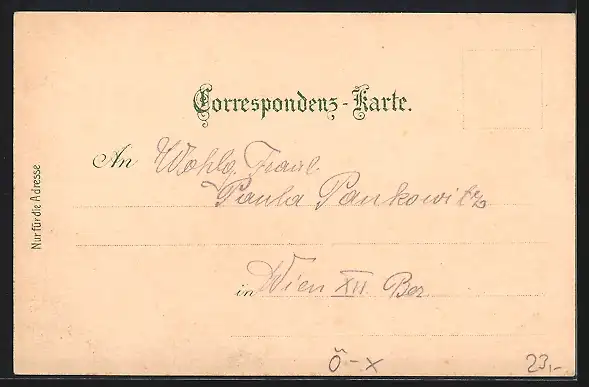 Correspondenz-Karte.
An Wohlg. Fraul.
Paula Pankowitz
in Wien XII. Bez
Nur für die Adresse
Ö-X
23,-